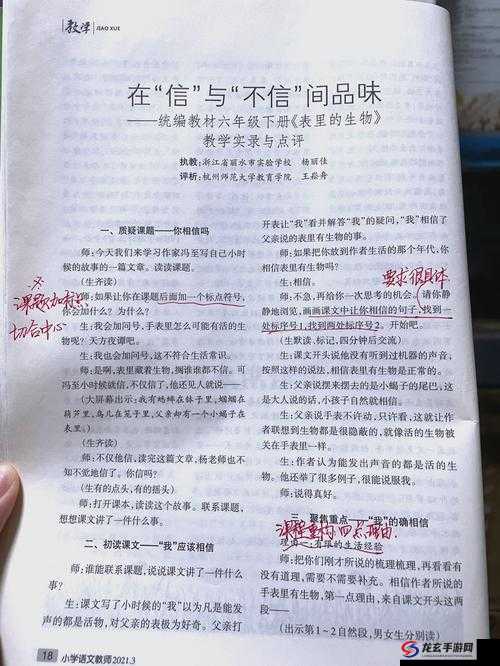 教学 JIAO XUE
在“信”与“不信”间品味
——统编教材六年级下册《表里的生物》
教学实录与点评
执教：浙江省丽水市实验学校 杨丽佳
评析：杭州师范大学教育学院 王崧舟
一、质疑课题——你相信吗
师：今天我们来学习作家冯至写自己小时
候的故事的一篇文章。读读课题。
（生齐读）
师：如果让你在课题后面加一个标点符号，
你会加什么？为什么？
生：我会加问号，手表里怎么可能有活的生
物呢？天方夜谭吧。
生：我也会加问号，这不符合生活常识。
师：是啊，表里藏着生物，搁谁谁都不信。可
冯至小时候就信，不仅信了，他还见人就说——
（大屏幕出示：我有蟋蟀在钵子里，蝈蝈在
葫芦里，鸟儿在笼子里，父亲却有一个小蝎子在
表里。）
（生齐读）
师：不仅他信，读完这篇文章，杨老师也不
知不觉地信了。你信吗？
（生有的点头，有的摇头）
师：打开课本，读读这个故事。联系课题，
想想课文讲了一件什么事。
二、初读课文——“我”应该相信
师：谁能联系课题，说说课文讲了一件什么
事？
生：课文写了小时候的“我”以为凡是能发
声的都是活物，对父亲的表极为好奇。父亲打
课题加标点，
切合中心
开表让“我”看并解答“我”的疑问，“我”相信了
父亲说的表里有生物的事。
师：如果把你放到作者生活的那个年代，你
相信表里有生物吗？
生：相信。
要求很具体
师：不急，再给你一次思考的机会。请你静
静地浏览，画画课文中让你相信的句子，找到一
处标序号1，找到两处标序号2。开始吧。
（生默读，标记，四分钟后交流）
生：课文开头说他没有听到过机器的声音，
按照这样的说法，相信表里有生物是正常的。
生：父亲说摆来摆去的是小蝎子的尾巴，这
是大人说的话，小孩子自然就相信。
生：父亲说手表不许动，只许看，这就让作
者联想到生物都是很隐蔽的，就像活的生物被
关在手表里一样。
生：作者认为能发出声音的都是活的生
物。他还举了很多例子，很能说服我。
师：说得真好。
三、聚焦重点——“我”的确相信
课程重构四点理由：
理由一：有限的生活经验
师：把你们刚才所说的梳理梳理，再看看有
没有道理，需要不需要补充。相信作者所说的
手表里有生物，第一点理由，来自课文开头这两
段——
（出示第1~2自然段，男女生分别读）
18 小学语文教师2021.3
龙玄手游网